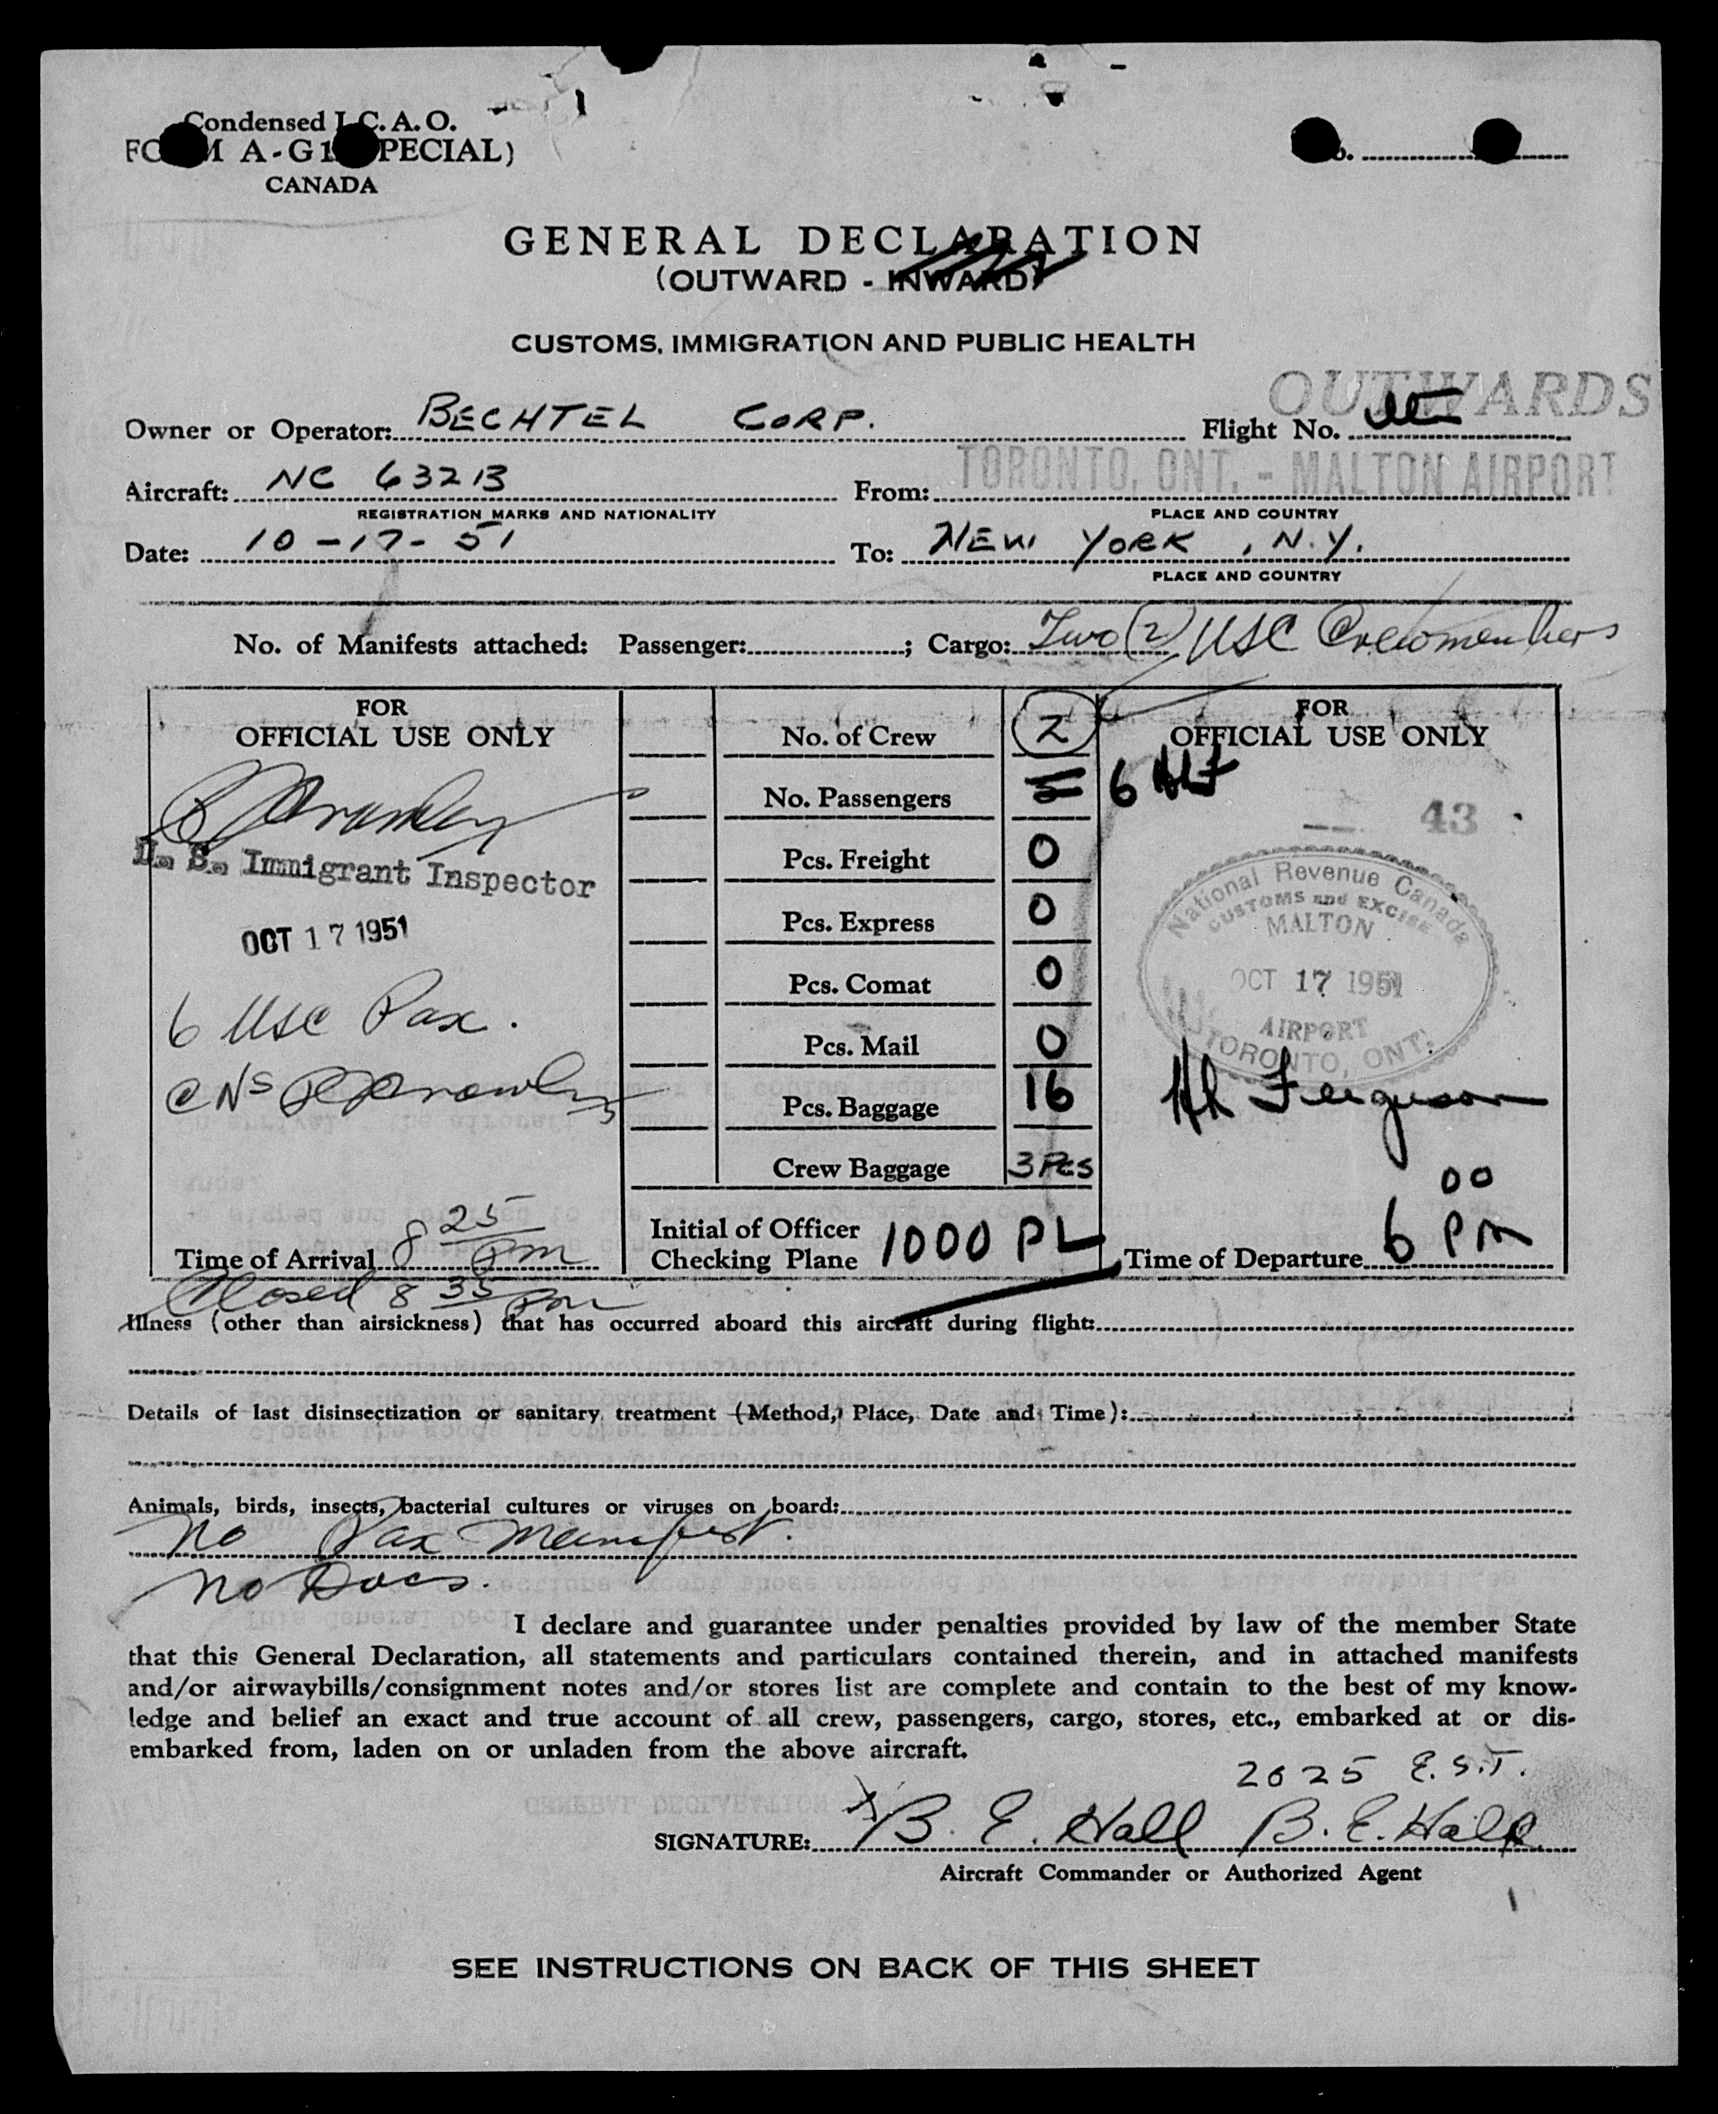 Condensed I.C.A.O.
FORM A-G1 (SPECIAL)
CANADA
GENERAL DECLARATION
(OUTWARD - INWARD)
CUSTOMS, IMMIGRATION AND PUBLIC HEALTH
OUTWARDS
Owner or Operator: BECHTEL CORP. Flight No.
Aircraft: NC 6321B From: TORONTO, ONT. - MALTON AIRPORT
REGISTRATION MARKS AND NATIONALITY PLACE AND COUNTRY
Date: 10-17-51 To: NEW YORK, N.Y.
PLACE AND COUNTRY
No. of Manifests attached: Passenger: ; Cargo: Two (2) USC Crewmembers
FOR
OFFICIAL USE ONLY
U. S. Immigrant Inspector
OCT 17 1951
6 USC Pax.
Time of Arrival 8 25 PM
Closed 8 35 pm
No. of Crew 2
No. Passengers 5 6
Pcs. Freight 0
Pcs. Express 0
Pcs. Comat 0
Pcs. Mail 0
Pcs. Baggage 16
Crew Baggage 3 PCS
Initial of Officer
Checking Plane 1000 PL
FOR
OFFICIAL USE ONLY
43
National Revenue Canada
CUSTOMS and EXCISE
MALTON
OCT 17 1951
AIRPORT
TORONTO, ONT.
HL Ferguson
Time of Departure 6 00 PM
Illness (other than airsickness) that has occurred aboard this aircraft during flight:
Details of last disinsectization or sanitary treatment (Method, Place, Date and Time):
Animals, birds, insects, bacterial cultures or viruses on board:
No Pax Manifest.
No Docs.
I declare and guarantee under penalties provided by law of the member State
that this General Declaration, all statements and particulars contained therein, and in attached manifests
and/or airwaybills/consignment notes and/or stores list are complete and contain to the best of my know-
ledge and belief an exact and true account of all crew, passengers, cargo, stores, etc., embarked at or dis-
embarked from, laden on or unladen from the above aircraft.
2025 E.S.T.
SIGNATURE: B. E. Hall B. E. Hall
Aircraft Commander or Authorized Agent
SEE INSTRUCTIONS ON BACK OF THIS SHEET